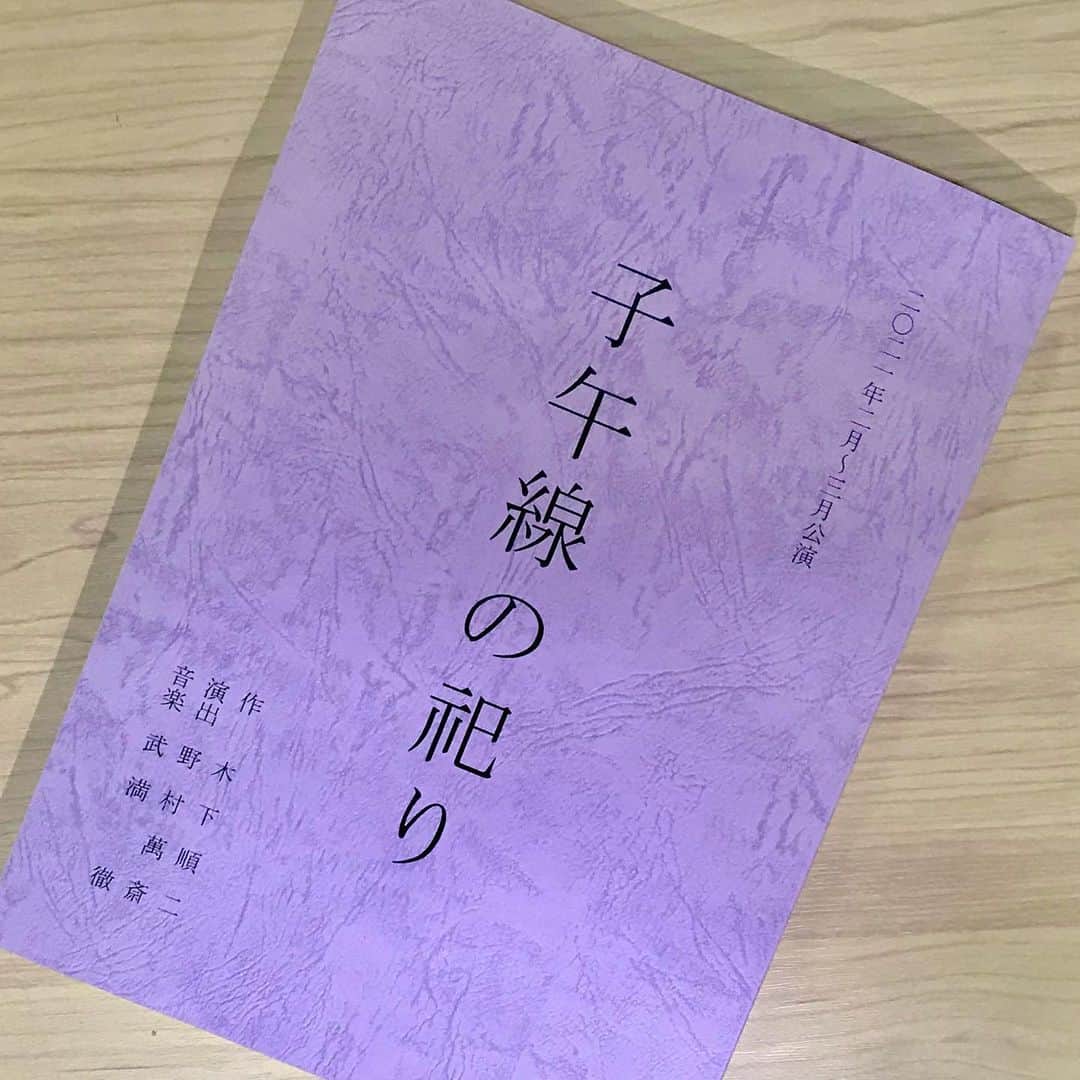 二〇二一年二月～三月公演
子午線の祀り
作 木下順二
演出 野村萬斎
音楽 武満徹